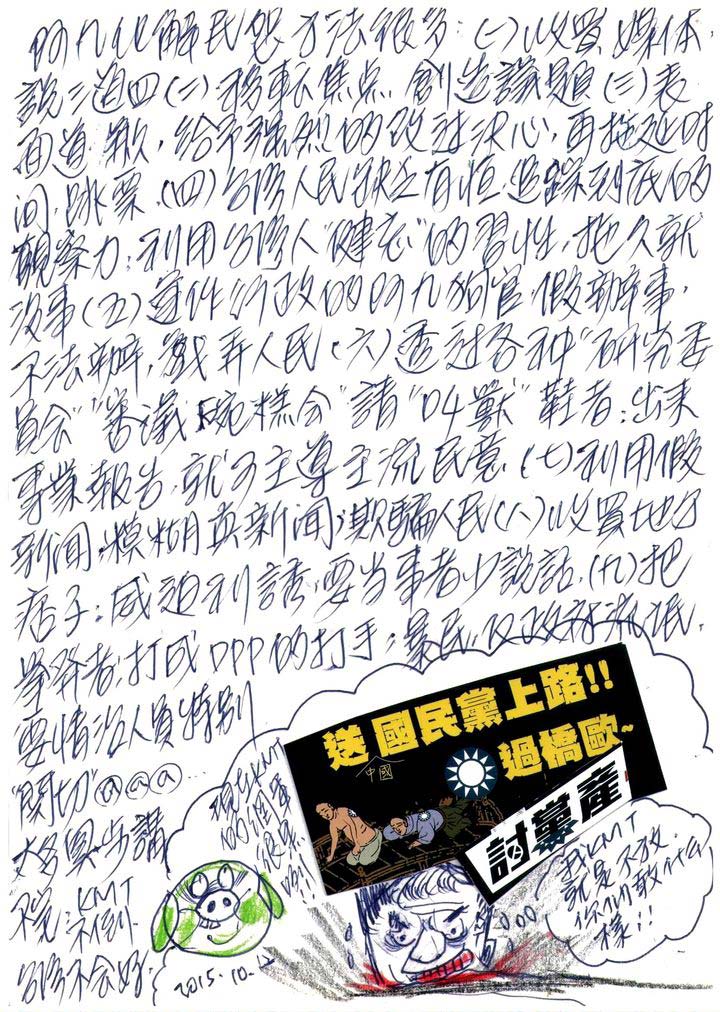 阿九化解民怨方法很多:(一)收買媒体,
說三道四(二)移転焦点,創造議題(三)表
面道歉,給予強烈的改進決心,再拖延时
间,跳票.(四)台湾人民缺乏有恒,追踪到底的
観察力;利用台湾人"健忘"的習性,拖久就
沒事(五)運作行政的阿九狗官,假辦事,
不法辦,戲弄人民(六)透过各种"研究委
員会""審議碗糕会"請"叫獸"鞋者;出来
専業報告,就可主導主流民意.(七)利用假
新闻,模糊真新闻;欺騙人民(八)收買地方
痞子;威迫利誘,要当事者少說話.(九)把
举発者,打成DPP的打手;暴民,反政府流氓,
要情治人員特别
"関切"@@@...
太多奧步講
不完;KMT
不倒.
台湾不会好.
2015.10.
現在KMT
的網軍
很
送國民黨上路!!
過橋歐~
中國
討黨產
我KMT
就是不放.
你们敢什么
樣!!